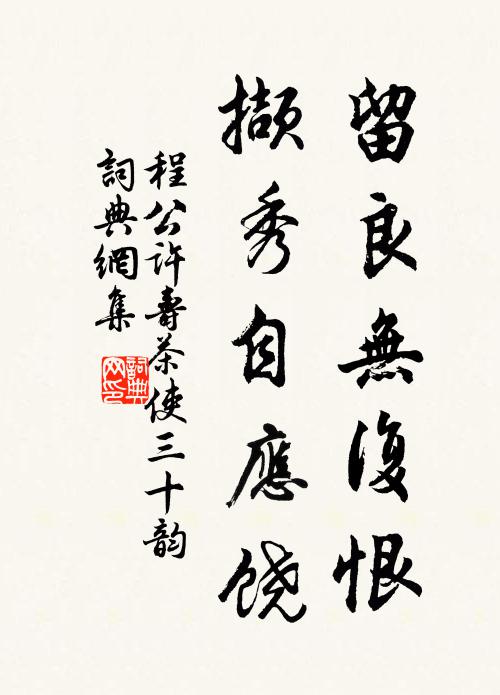 留良無復恨
擷秀自應饶
程公許壽茶使三十韵
詞典網集
詞典網印